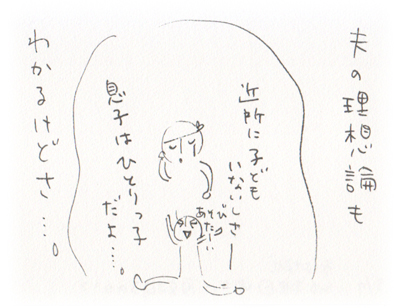 夫の理想論も
わかるけどさ…。
近所に子ども
いないしさー
あそびたーい
息子はひとりっ子
だよ…。